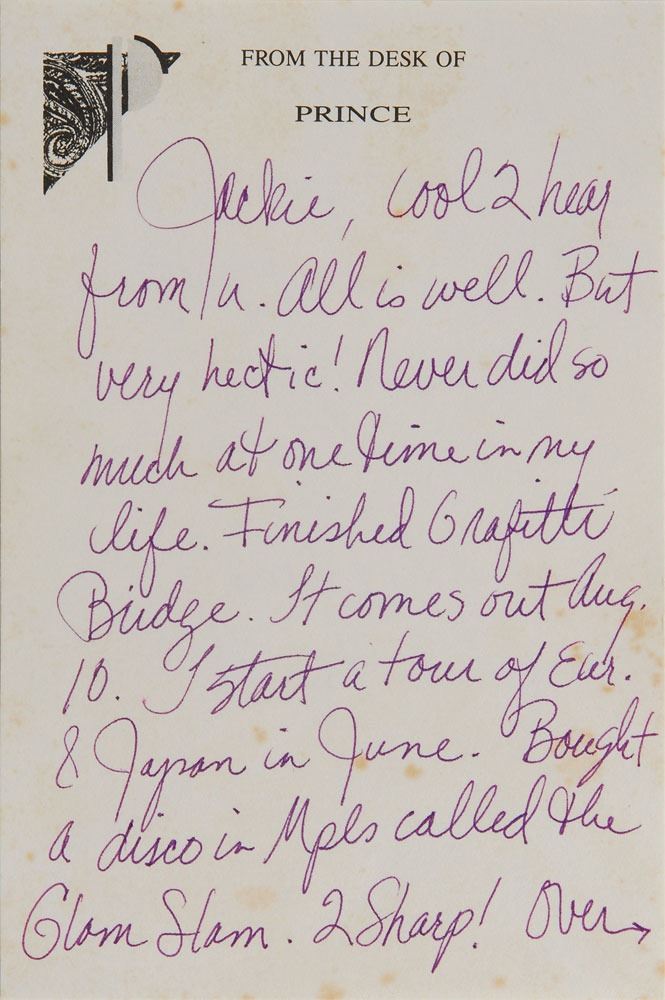 FROM THE DESK OF
PRINCE
Jackie, cool 2 hear
from u. All is well. But
very hectic! Never did so
much at one time in my
life. Finished Grafitti
Bridge. It comes out Aug.
10. I start a tour of Eur.
& Japan in June. Bought
a disco in Mpls called the
Glam Slam. 2 Sharp! Over→